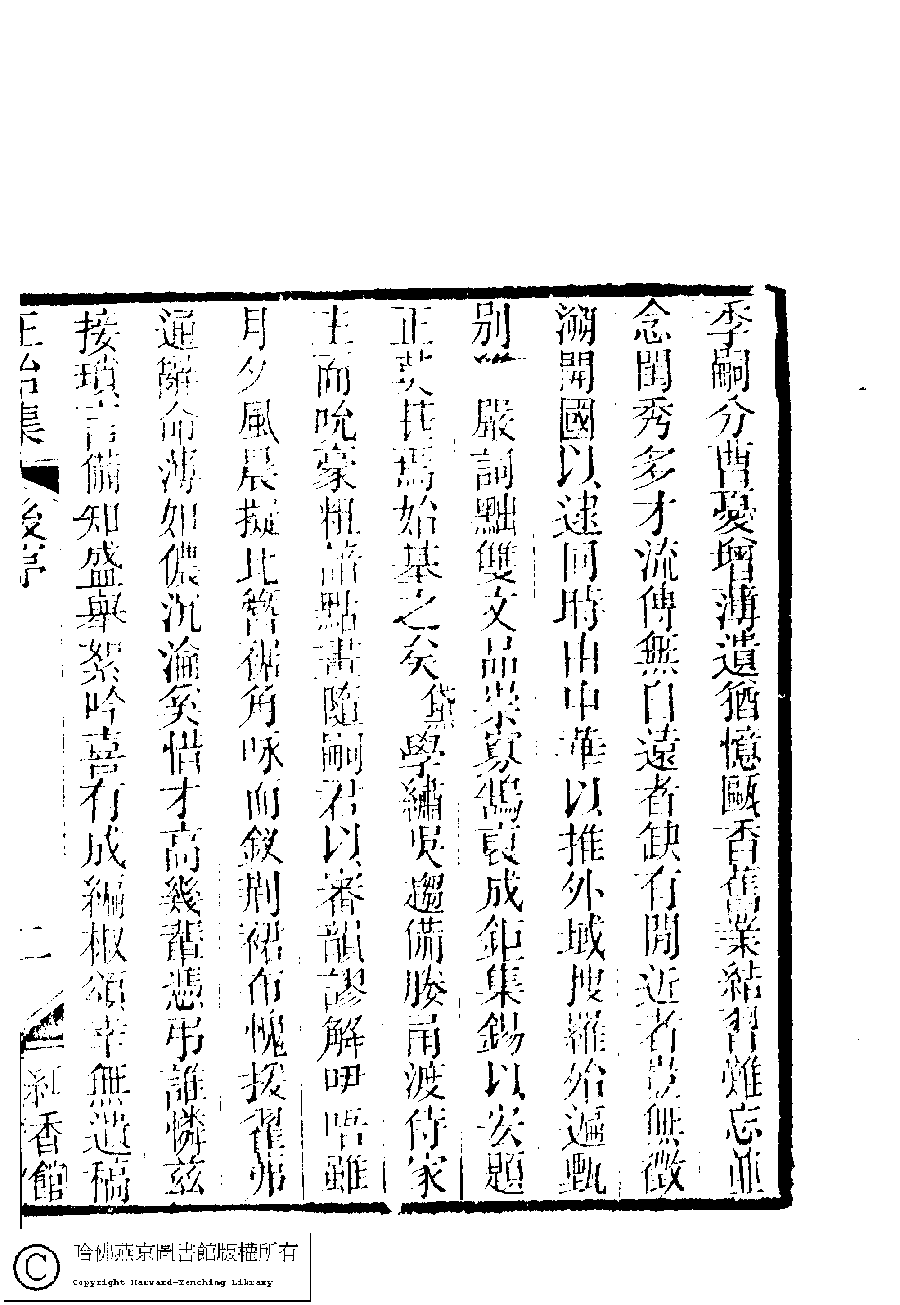 季嗣分曹憂增薄遺猶憶甌香舊業結習難忘並
念閨秀多才流傳無自遠者缺有間近者莫無徵
溯開國以逮同時由中華以推外域搜羅殆遍甄
別 嚴詞黜雙文品崇寡鵠裒成鉅集錫以安題
正英其焉始基之矣黛學繡吳趨備媵甬渡侍家
主而吮豪粗諳點畫隨嗣君以審韻謬解咿唔雖
月夕風晨擬比簪裾角咏而釵荊裙布愧援翟茀
通辭命薄如儂沉淪奚惜才高幾輩憑弔誰憐茲
接瑣言備知盛舉絮吟喜有成編椒頌幸無遺稿
正始集 後序 二 紅香館
哈佛燕京圖書館版權所有
Copyright Harvard-Yenching Library